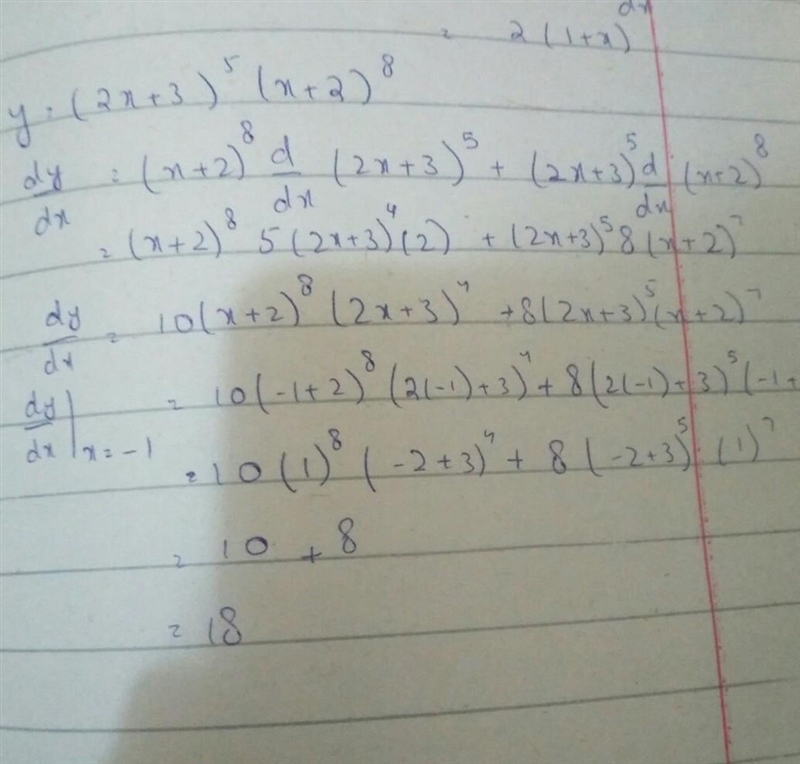 dx
= 2(1+x)
y = (2x+3)⁵ (x+2)⁸
dy/dx = (x+2)⁸ d/dx (2x+3)⁵ + (2x+3)⁵ d/dx (x+2)⁸
= (x+2)⁸ 5(2x+3)⁴(2) + (2x+3)⁵ 8(x+2)⁷
dy/dx = 10(x+2)⁸ (2x+3)⁴ + 8(2x+3)⁵ (x+2)⁷
dy/dx|x=-1 = 10(-1+2)⁸ (2(-1)+3)⁴ + 8(2(-1)+3)⁵ (-1+
= 10(1)⁸ (-2+3)⁴ + 8(-2+3)⁵ · (1)⁷
= 10 + 8
= 18